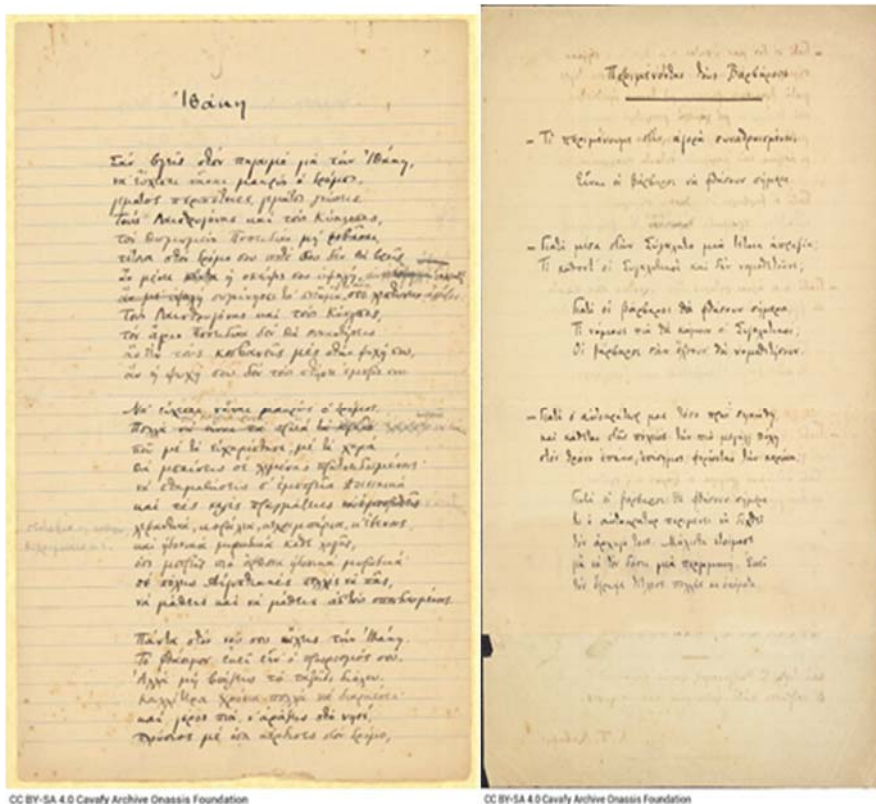 Ἰθάκη
Σὰν βγεῖς στὸν πηγαιμὸ γιὰ τὴν Ἰθάκη,
νὰ εὔχεσαι νἆναι μακρὺς ὁ δρόμος,
γεμάτος περιπέτειες, γεμάτος γνώσεις.
Τοὺς Λαιστρυγόνας καὶ τοὺς Κύκλωπας,
τὸν θυμωμένο Ποσειδῶνα μὴ φοβᾶσαι,
τέτοια στὸν δρόμο σου ποτέ σου δὲν θὰ βρεῖς,
ἂν μέν' ἡ σκέψις σου ὑψηλή,
Τοὺς Λαιστρυγόνας καὶ τοὺς Κύκλωπας,
τὸν ἄγριο Ποσειδῶνα δὲν θὰ συναντήσεις
ἂν δὲν τοὺς κουβανεῖς μὲς στὴν ψυχή σου,
ἂν ἡ ψυχή σου δὲν τοὺς στήνει ἐμπρός σου
Νὰ εὔχεσαι νἆναι μακρὺς ὁ δρόμος.
Πολλὰ
ποῦ μὲ τί εὐχαρίστησι, μὲ τί χαρὰ
θὰ μπαίνεις σὲ λιμένας πρωτοειδωμένους·
νὰ σταματήσεις σ' ἐμπορεῖα Φοινικικὰ
καὶ τὲς καλὲς πραγμάτειες
καὶ ἡδονικὰ μυρωδικὰ κάθε λογῆς,
ὅσο μπορεῖς πιὸ ἄφθονα ἡδονικὰ μυρωδικὰ
σὲ πόλεις Αἰγυπτιακὲς πολλὲς νὰ πᾶς,
νὰ μάθεις καὶ νὰ μάθεις ἀπ' τοὺς σπουδασμένους.
Πάντα στὸν νοῦ σου νἄχεις τὴν Ἰθάκη.
Τὸ φθάσιμον ἐκεῖ εἶν' ὁ προορισμός σου.
Ἀλλὰ μὴ βιάζεις τὸ ταξεῖδι διόλου.
Καλλίτερα χρόνια πολλὰ νὰ διαρκέσει
καὶ γέρος πιὰ ν' ἀράξεις στὸ νησί,
πλούσιος μὲ ὅσα κέρδισες στὸν δρόμο,
CC BY-SA 4.0 Cavafy Archive Onassis Foundation
Περιμένοντας τοὺς Βαρβάρους
– Τί περιμένουμε στὴν ἀγορὰ συναθροισμένοι;
Εἶναι οἱ βάρβαροι νὰ φθάσουν σήμερα.
– Γιατί μέσα στὴν Σύγκλητο μιὰ τέτοια ἀπραξία;
Τί κάθοντ' οἱ Συγκλητικοὶ καὶ δὲν νομοθετοῦνε;
Γιατὶ οἱ βάρβαροι θὰ φθάσουν σήμερα.
Τί νόμους πιὰ θὰ κάμουν οἱ Συγκλητικοί;
Οἱ βάρβαροι σὰν ἔλθουν θὰ νομοθετήσουν.
– Γιατί ὁ αὐτοκράτωρ μας τόσο πρωὶ σηκώθη,
καὶ κάθεται στῆς πόλεως τὴν πιὸ μεγάλη πύλη
στὸν θρόνο ἐπάνω, ἐπίσημος, φορῶντας τὴν κορώνα;
Γιατὶ οἱ βάρβαροι θὰ φθάσουν σήμερα.
Κι ὁ αὐτοκράτωρ περιμένει νὰ δεχθεῖ
τὸν ἀρχηγό τους. Μάλιστα ἑτοίμασε
γιὰ νὰ τὸν δώσει μιὰ περγαμηνή. Ἐκεῖ
τὸν ἔγραψε τίτλους πολλοὺς κι ὀνόματα.
CC BY-SA 4.0 Cavafy Archive Onassis Foundation